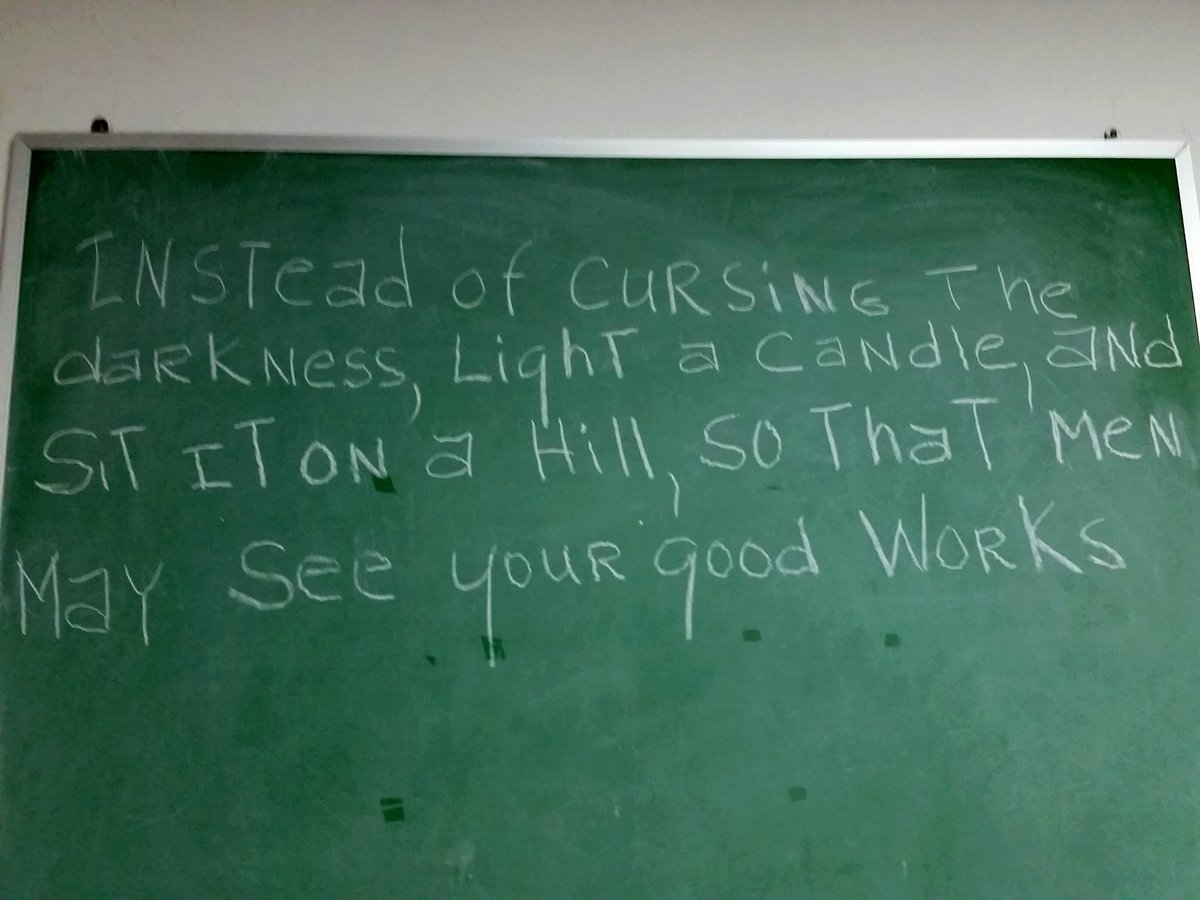 INSTead of CURSiNG The
darkNess, LighT a CaNdle, aNd
SiT IT ON a Hill, SO ThaT MeN
May See youR good WORKS